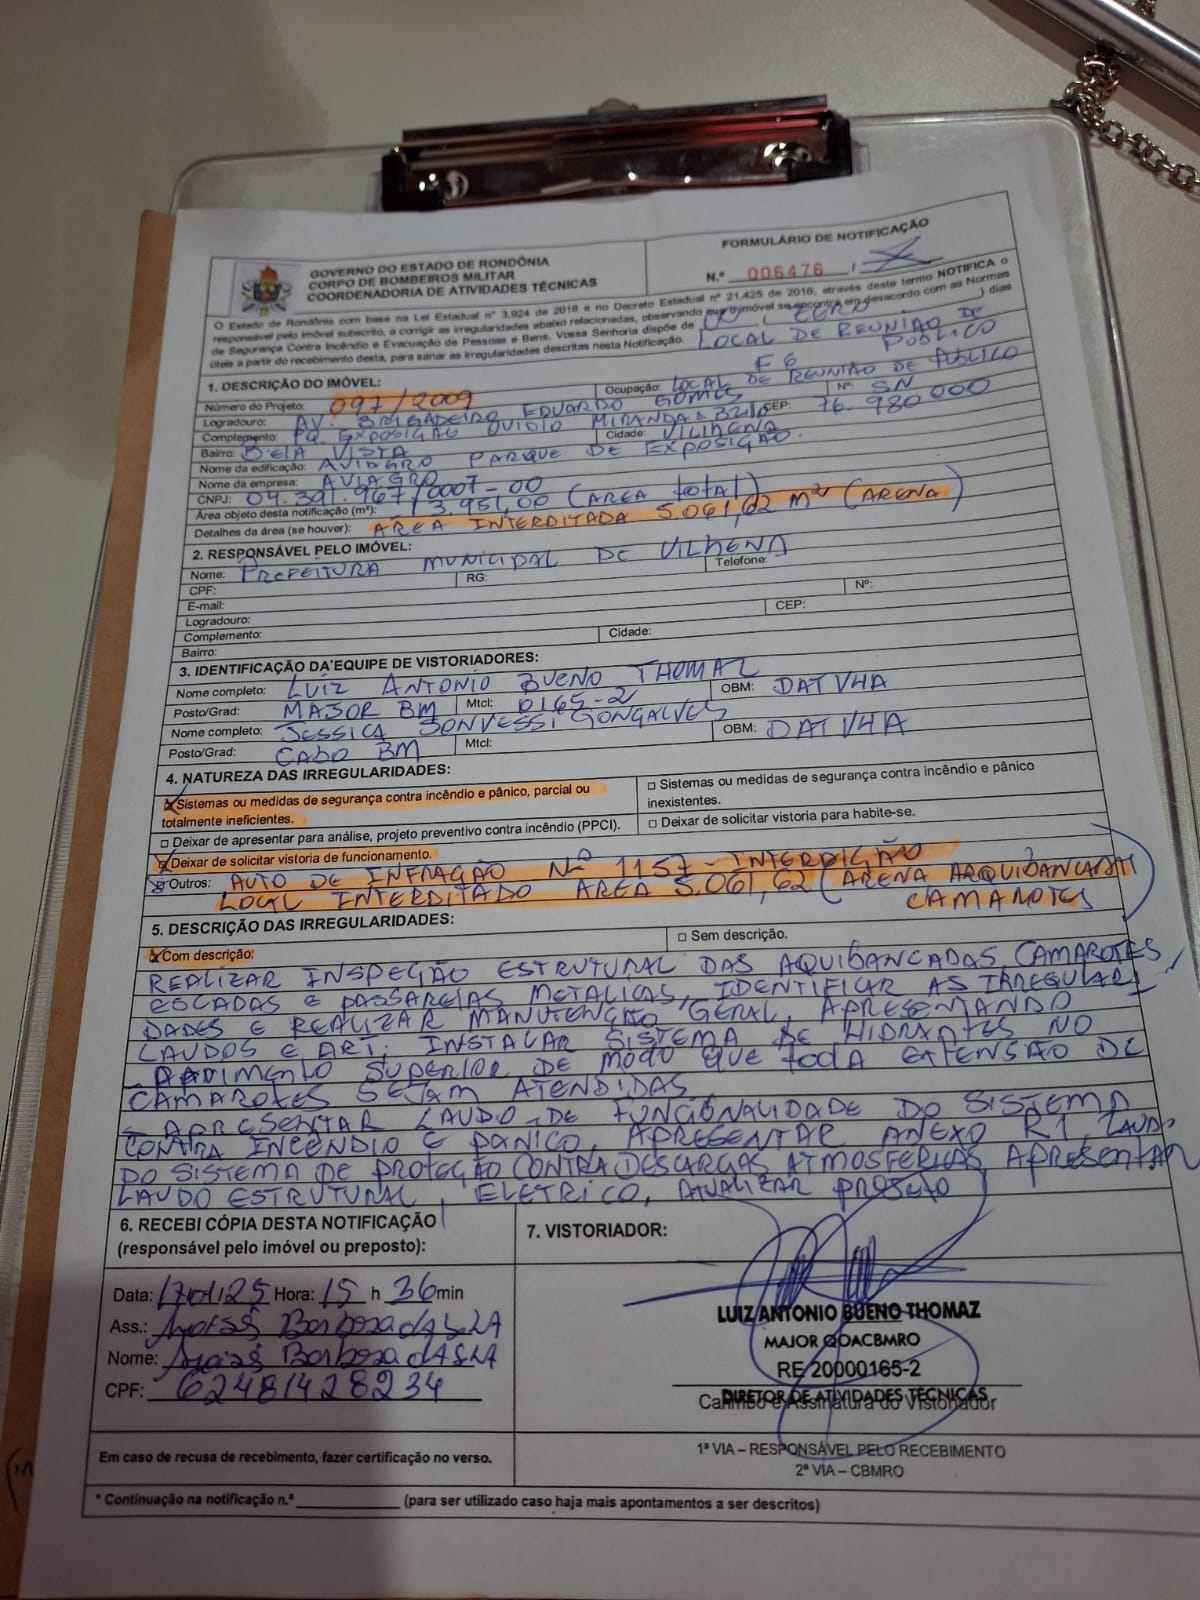 GOVERNO DO ESTADO DE RONDÔNIA
CORPO DE BOMBEIROS MILITAR
COORDENADORIA DE ATIVIDADES TÉCNICAS
FORMULÁRIO DE NOTIFICAÇÃO
N.º 006476 /
O Estado de Rondônia com base na Lei Estadual n° 3.924 de 2016 e no Decreto Estadual nº 21.425 de 2016, através deste termo NOTIFICA o
responsável pelo imóvel subscrito, a corrigir as irregularidades abaixo relacionadas, observando que o imóvel se encontra em desacordo com as Normas
de Segurança Contra Incêndio e Evacuação de Pessoas e Bens. Vossa Senhoria dispõe de 00 ( ZERO ) dias
úteis a partir do recebimento desta, para sanar as irregularidades descritas nesta Notificação.
LOCAL DE REUNIÃO DE PÚBLICO
1. DESCRIÇÃO DO IMÓVEL:
F6
Número do Projeto: 097/2009 Ocupação: LOCAL DE REUNIÃO DE PÚBLICO
Logradouro: AV. BRIGADEIRO EDUARDO GOMES Nº: SN
Complemento: PQ. EXPOSIÇÃO OVIDIO MIRANDA BRITO CEP: 76.980000
Bairro: BELA VISTA Cidade: VILHENA
Nome da edificação: AVIAGRO PARQUE DE EXPOSIÇÃO.
Nome da empresa: AVIAGRO
CNPJ: 04.391.967/0007-00
Área objeto desta notificação (m²): 13.951,00 (AREA TOTAL)
Detalhes da área (se houver): AREA INTERDITADA 5.061,62 m² (ARENA)
2. RESPONSÁVEL PELO IMÓVEL:
Nome: PREFEITURA MUNICIPAL DE VILHENA
CPF: RG: Telefone:
E-mail:
Logradouro: Nº:
Complemento: CEP:
Bairro: Cidade:
3. IDENTIFICAÇÃO DA EQUIPE DE VISTORIADORES:
Nome completo: LUIZ ANTONIO BUENO THOMAZ
Posto/Grad: MAJOR BM Mtcl: 0165-2 OBM: DAT VHA
Nome completo: JESSICA BONVESSI GONÇALVES
Posto/Grad: CABO BM Mtcl: OBM: DAT VHA
4. NATUREZA DAS IRREGULARIDADES:
☒ Sistemas ou medidas de segurança contra incêndio e pânico, parcial ou totalmente ineficientes.
□ Sistemas ou medidas de segurança contra incêndio e pânico inexistentes.
□ Deixar de apresentar para análise, projeto preventivo contra incêndio (PPCI).
□ Deixar de solicitar vistoria para habite-se.
☒ Deixar de solicitar vistoria de funcionamento.
☒ Outros: AUTO DE INFRAÇÃO Nº 1157 - INTERDIÇÃO
LOCAL INTERDITADO AREA 5.061,62 (ARENA ARQUIBANCADAS
CAMAROTES
5. DESCRIÇÃO DAS IRREGULARIDADES:
☒ Com descrição: □ Sem descrição.
REALIZAR INSPEÇÃO ESTRUTURAL DAS AQUIBANCADAS, CAMAROTES,
ESCADAS E PASSARELAS METALICAS, IDENTIFICAR AS IRREGULARI
DADES E REALIZAR MANUTENÇÃO GERAL, APRESENTANDO
LAUDOS E ART; INSTALAR SISTEMA DE HIDRANTES NO
PAVIMENTO SUPERIOR DE MODO QUE TODA EXTENSÃO DE
CAMAROTES SEJAM ATENDIDAS
- APRESENTAR LAUDO DE FUNCIONALIDADE DO SISTEMA
CONTRA INCENDIO E PANICO, APRESENTAR ANEXO R1, LAUDO
DO SISTEMA DE PROTEÇÃO CONTRA DESCARGAS ATMOSFERICAS, APRESENTAR
LAUDO ESTRUTURAL, ELETRICO, ATUALIZAR PROJETO
6. RECEBI CÓPIA DESTA NOTIFICAÇÃO
(responsável pelo imóvel ou preposto):
Data: 17/01/25 Hora: 15 h 36min
Ass.: Barbosa da Silva
Nome: Barbosa da Silva
CPF: 62481428234
7. VISTORIADOR:
LUIZ ANTONIO BUENO THOMAZ
MAJOR QOACBMRO
RE 20000165-2
DIRETOR DE ATIVIDADES TÉCNICAS
Carimbo e Assinatura do Vistoriador
Em caso de recusa de recebimento, fazer certificação no verso.
1ª VIA – RESPONSÁVEL PELO RECEBIMENTO
2ª VIA – CBMRO
* Continuação na notificação n.º __________ (para ser utilizado caso haja mais apontamentos a ser descritos)